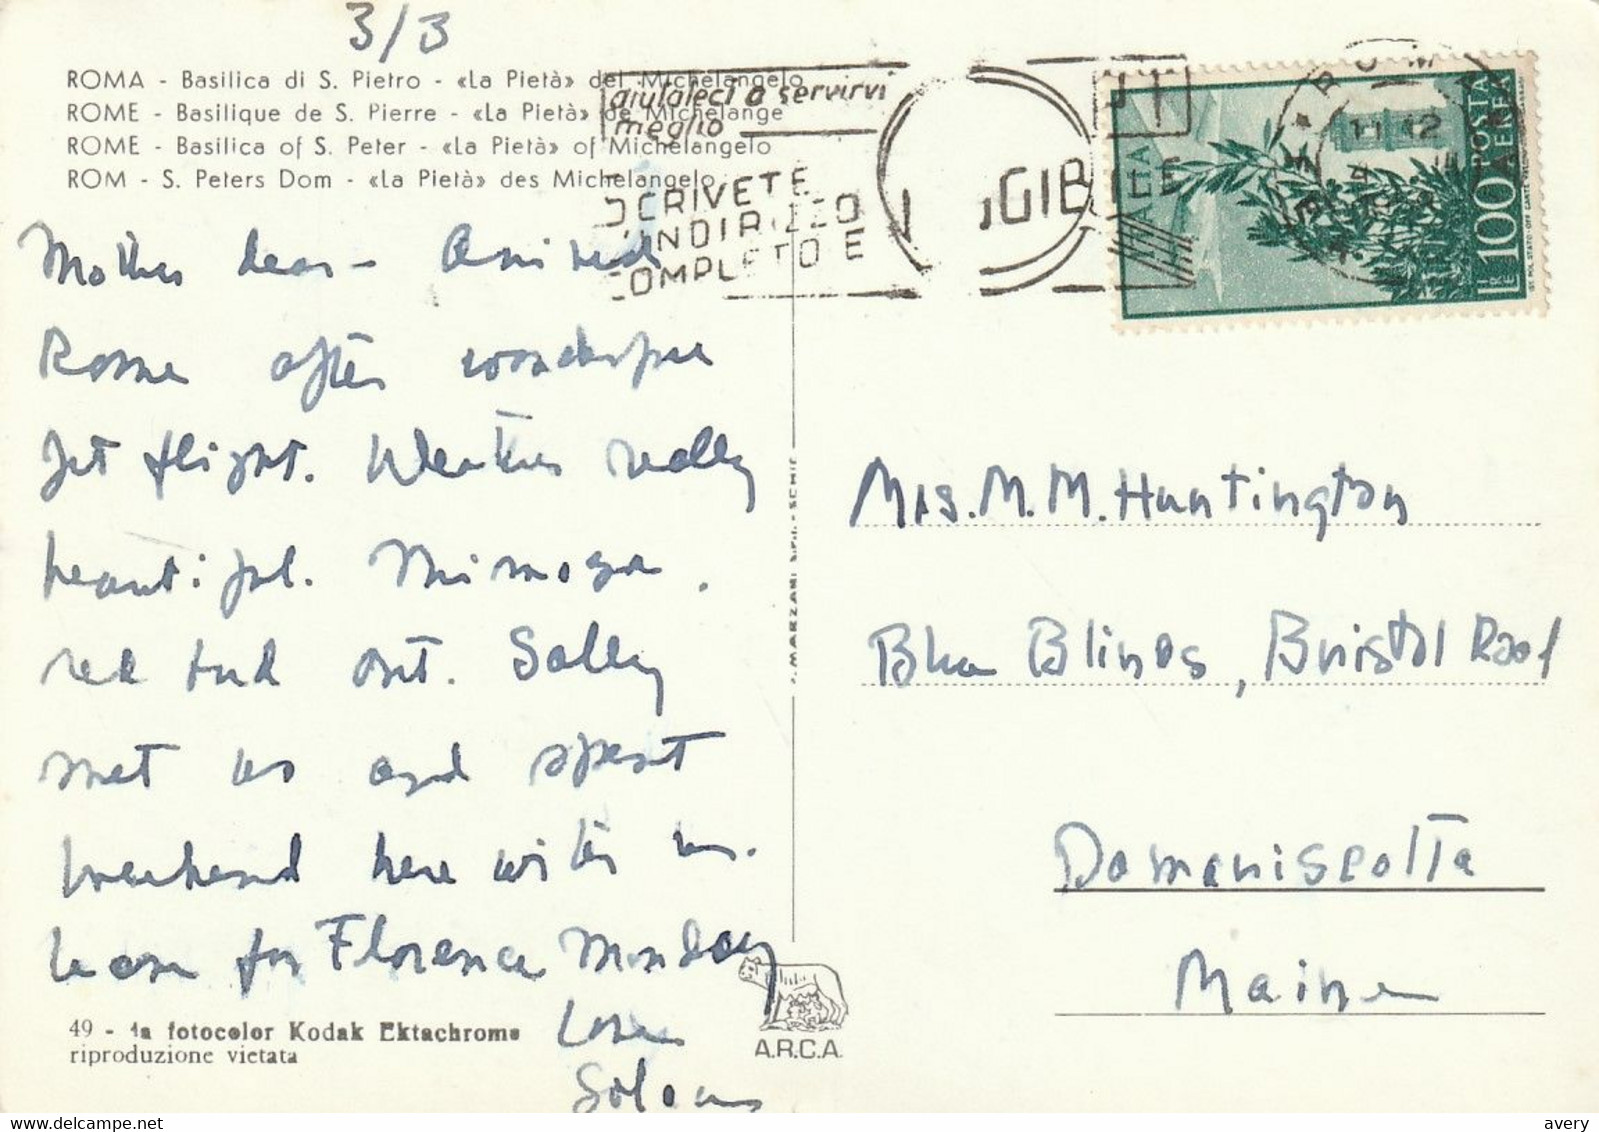 3/3
ROMA - Basilica di S. Pietro - «La Pietà» del Michelangelo
ROME - Basilique de S. Pierre - «La Pietà» de Michelange
ROME - Basilica of S. Peter - «La Pietà» of Michelangelo
ROM - S. Peters Dom - «La Pietà» des Michelangelo
aiutateci a servirvi
meglio
SCRIVETE
INDIRIZZO
COMPLETO E
GIBILE
POSTA AEREA
LIRE 100
IST. POL. STATO - OFF. CARTE VALORI
Mother dear - Arrived
Rome after wonderful
jet flight. Weather really
beautiful. Mimosa,
red bud out. Sally
met us and spent
weekend here with us.
Leave for Florence Monday
Love
Mrs. M. M. Huntington
Blue Blinds, Bristol Road
Damariscotta
Maine
49 - 1a fotocolor Kodak Ektachrome
riproduzione vietata
A.R.C.A.
avery